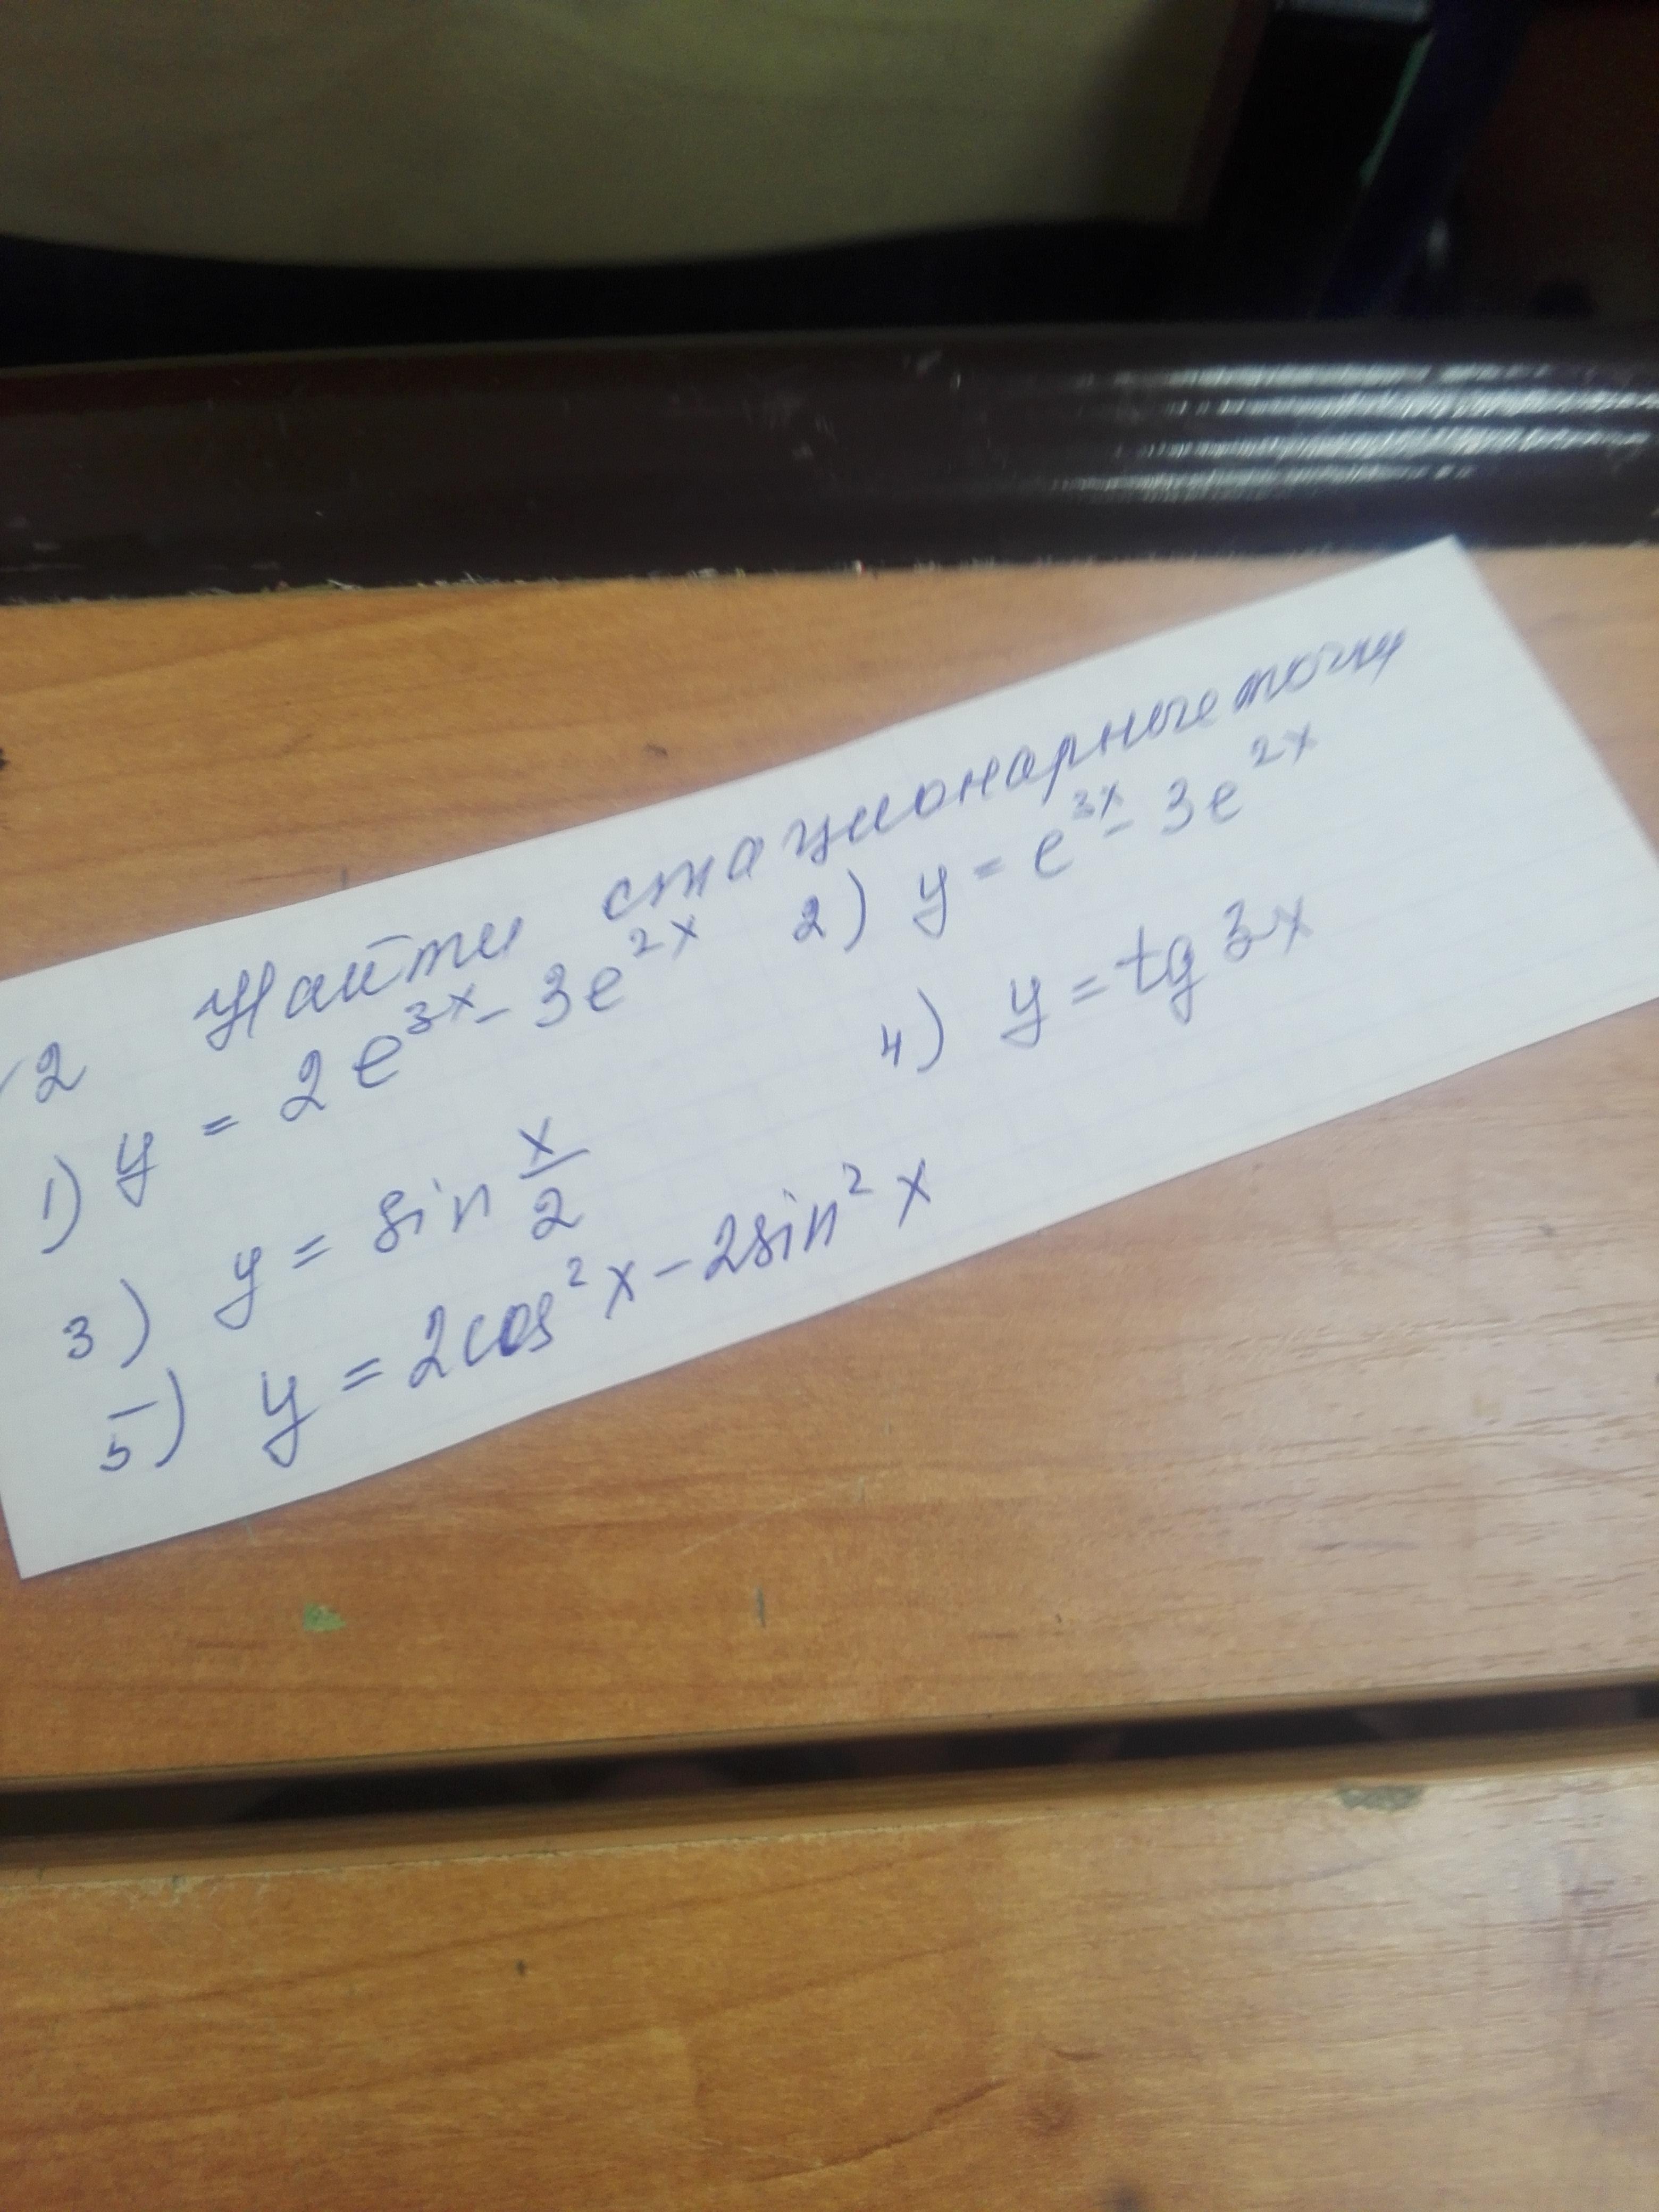 2 Найти стационарные точки
1) y = 2e^{3x} - 3e^{2x} 2) y = e^{3x} - 3e^{2x}
3) y = sin x/2 4) y = tg 3x
5) y = 2cos²x - 2sin²x